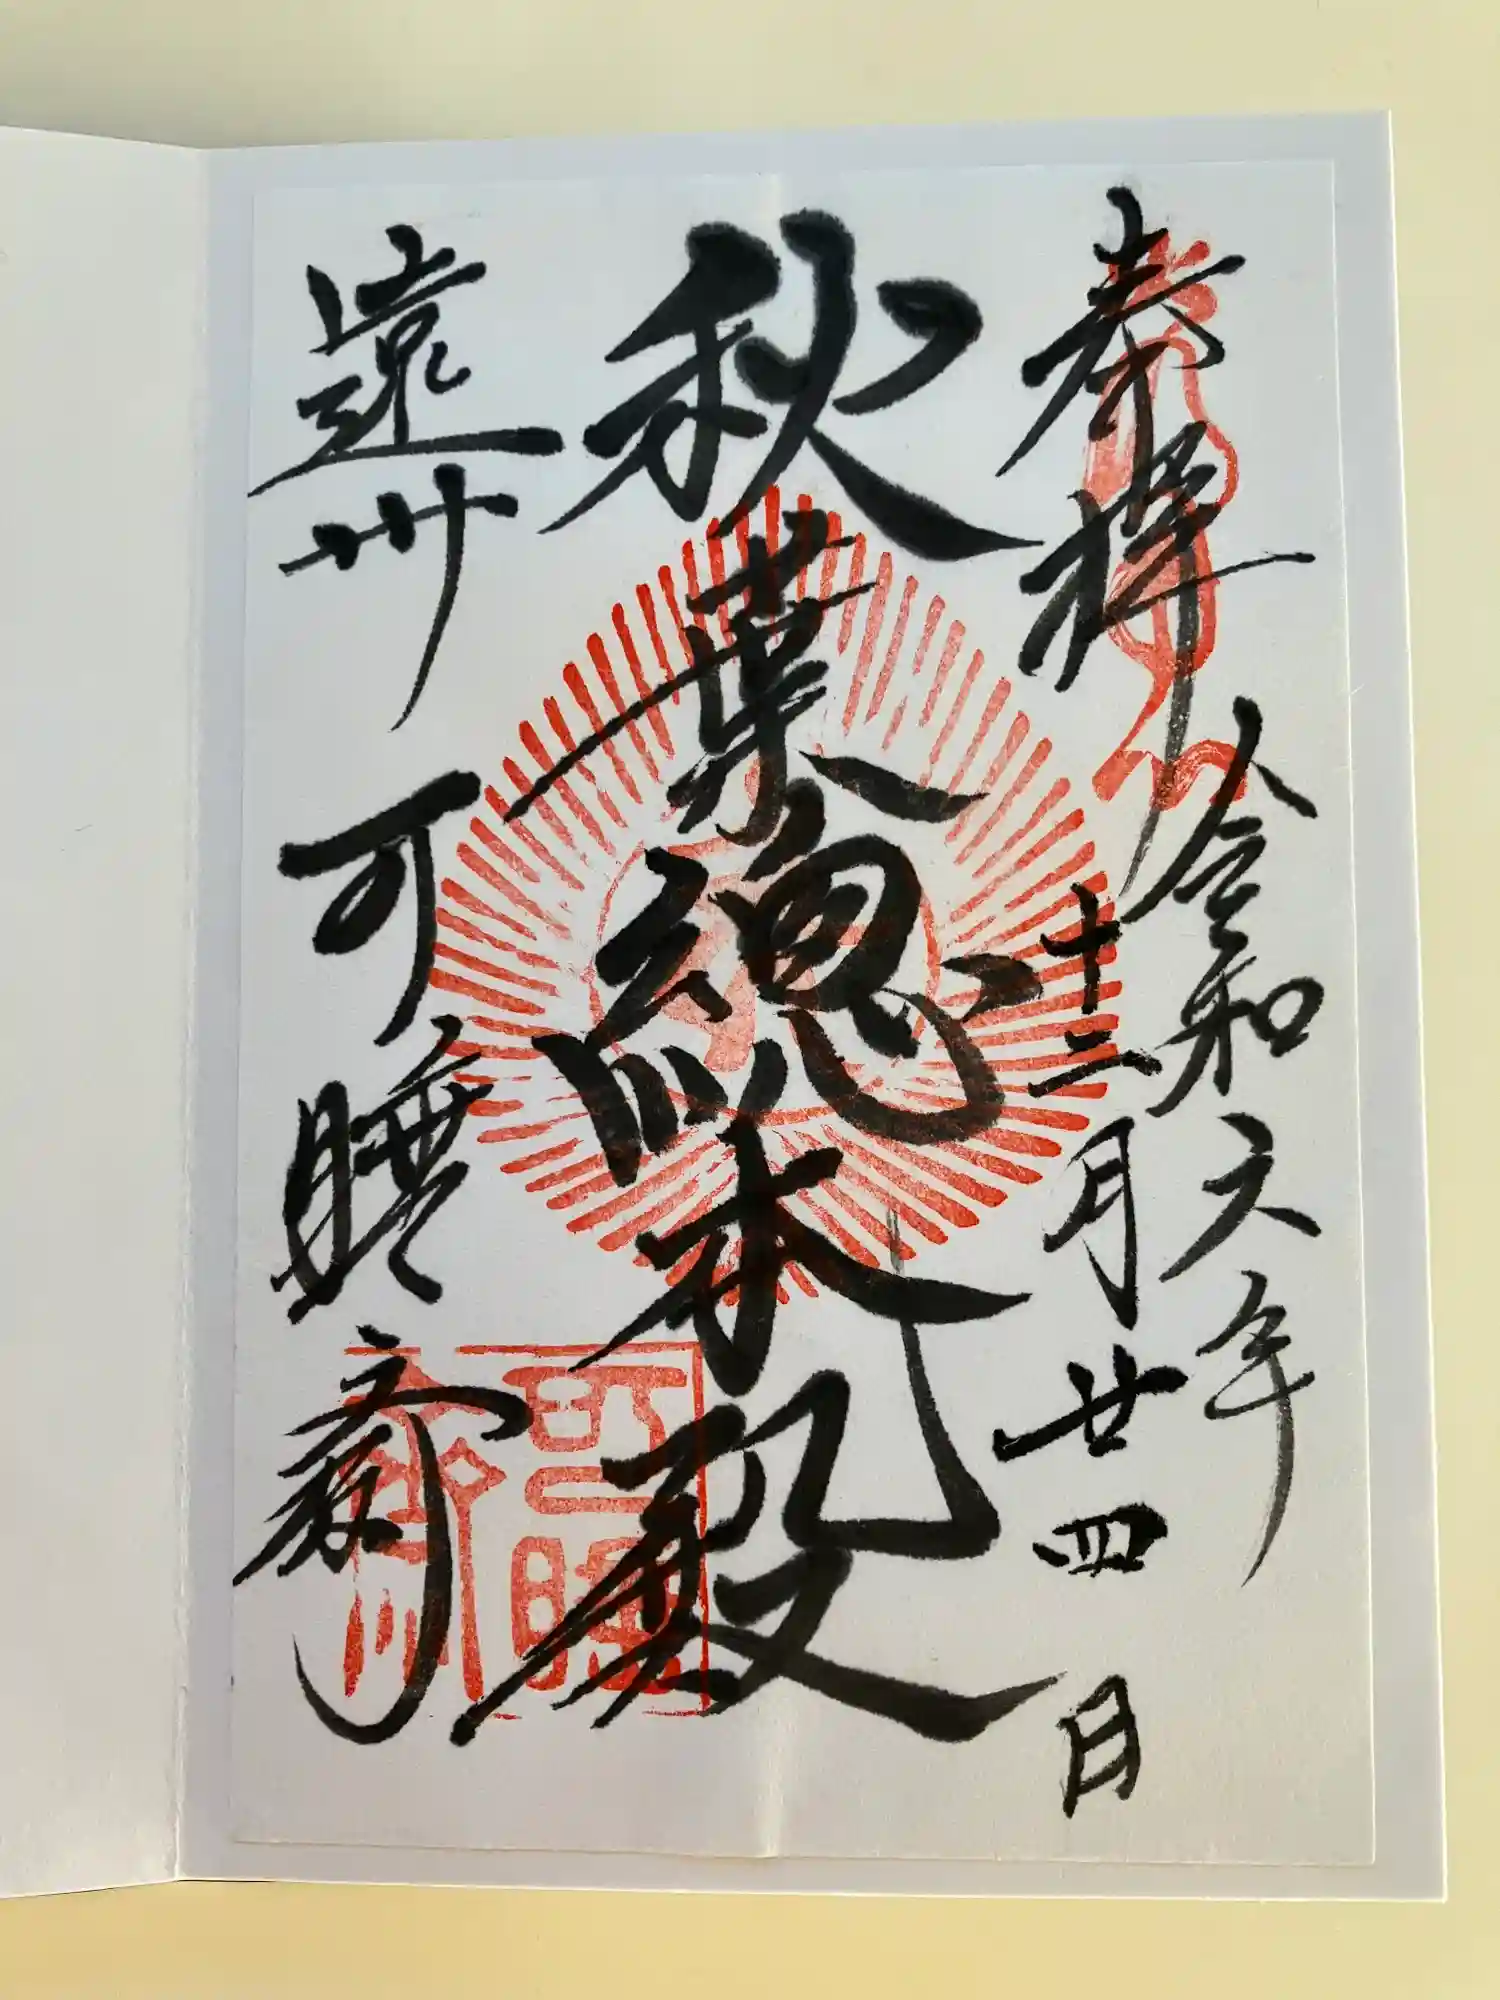 奉拝
令和六年
十二月廿四日
秋葉總本殿
遠州
可睡齋
可睡
齋